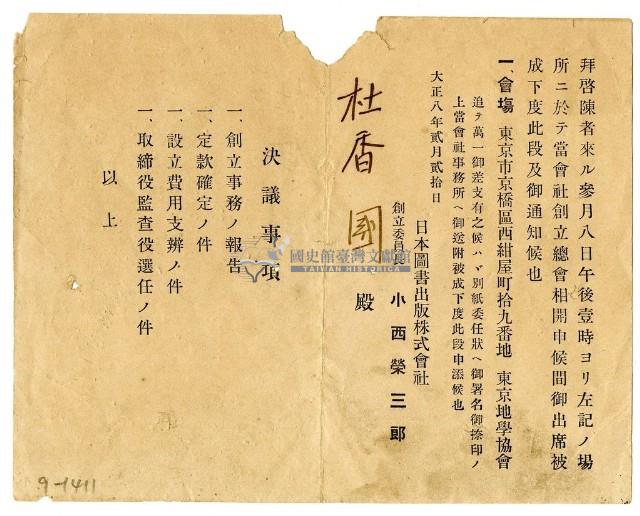 拜啓陳者來ル參月八日午後壹時ヨリ左記ノ場
所ニ於テ當會社創立總會相開申候間御出席被
成下度此段及御通知候也
一、會塲 東京市京橋區西紺屋町拾九番地 東京地學協會
追テ萬一御差支有之候ハヾ別紙委任狀ヘ御署名御捺印ノ
上當會社事務所ヘ御送附被成下度此段申添候也
大正八年貳月貳拾日
日本圖書出版株式會社
創立委員長 小西榮三郎
杜香國 殿
決議事項
一、創立事務ノ報告
一、定款確定ノ件
一、設立費用支辨ノ件
一、取締役監査役選任ノ件
以上
國史館臺灣文獻館
TAIWAN HISTORICA
9-1411